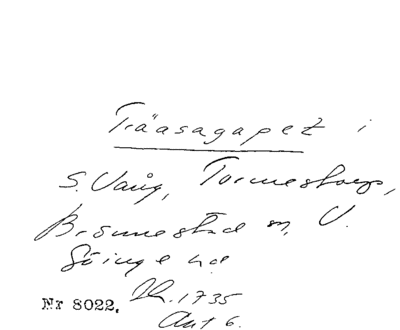 Träasagapet i
S. Vång, Tormestorp,
Brönnestad sn, V.
Göinge hd
Nr 8022. Ak. 1735
Akt 6.